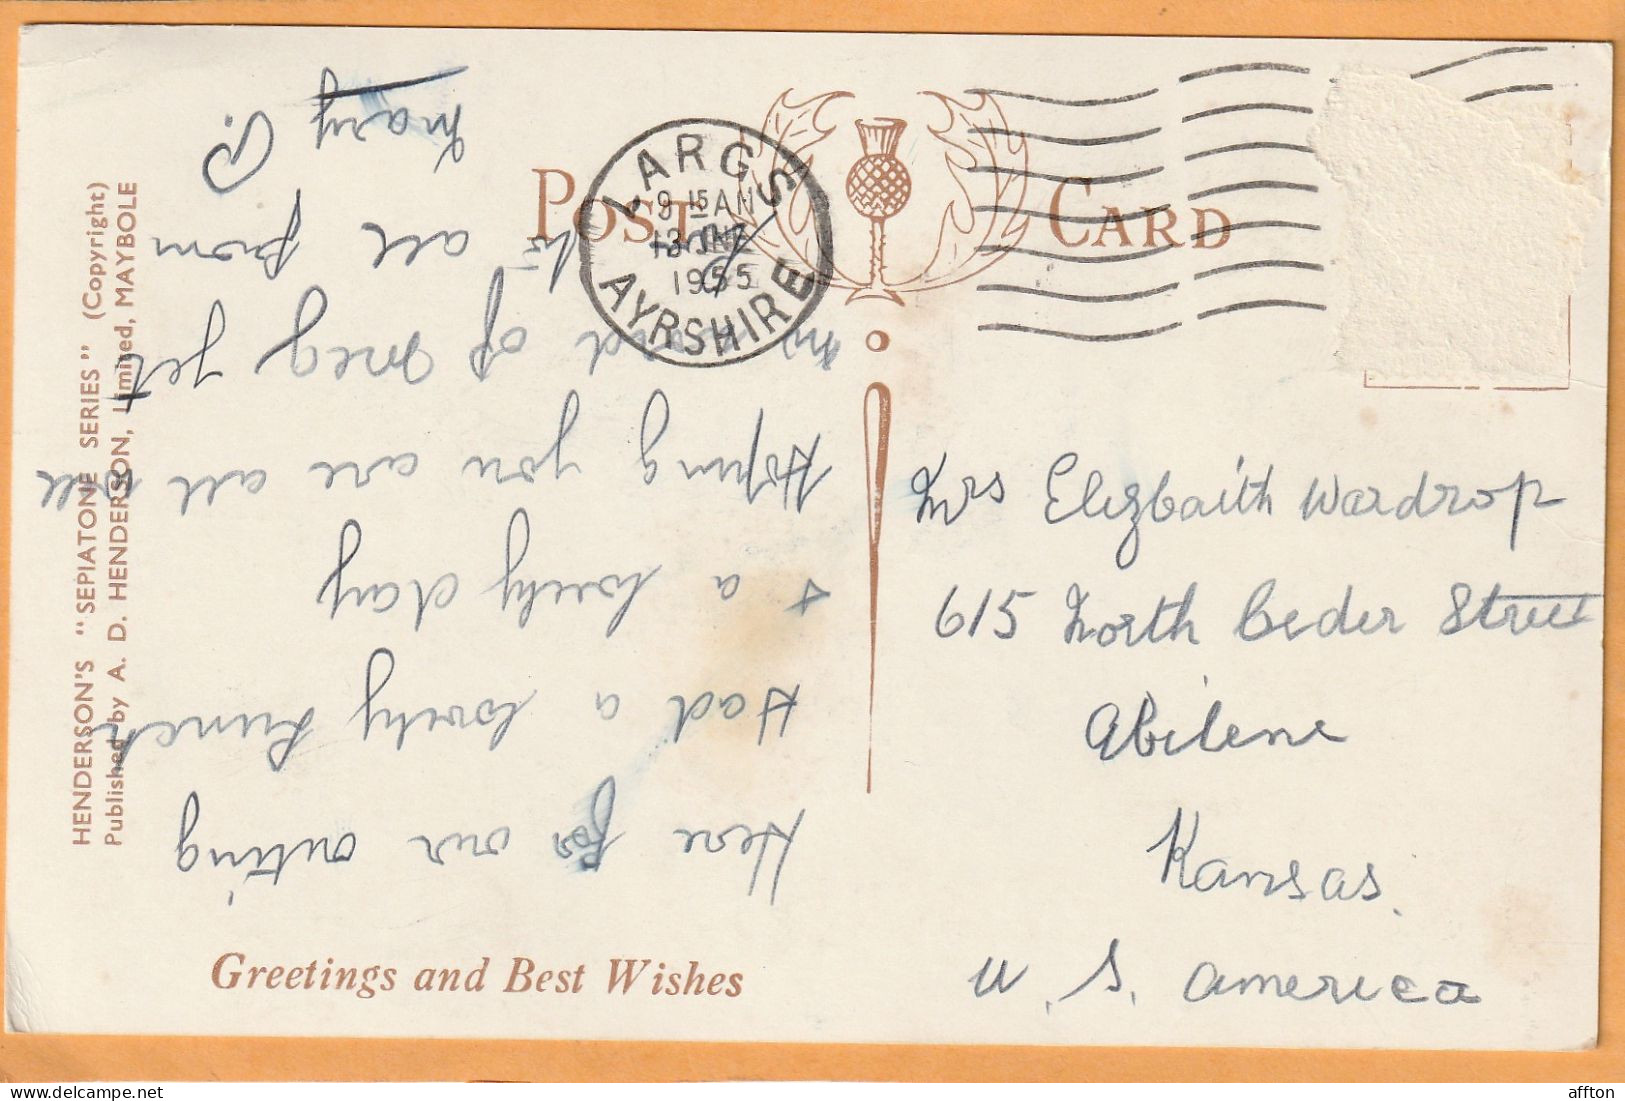 POST CARD
LARGS
9 15 AM
13 JNE
1955
AYRSHIRE
HENDERSON'S "SEPIATONE SERIES" (Copyright)
Published by A. D. HENDERSON, Limited, MAYBOLE
Here for our outing
Had a lovely Lunch
& a lovely day
Hoping you are all well
no word of Meg yet
all from
Mary P.
Mrs Elizbaith Wardrop
615 North Ceder Street
Abilene
Kansas.
U. S. America
Greetings and Best Wishes
affton